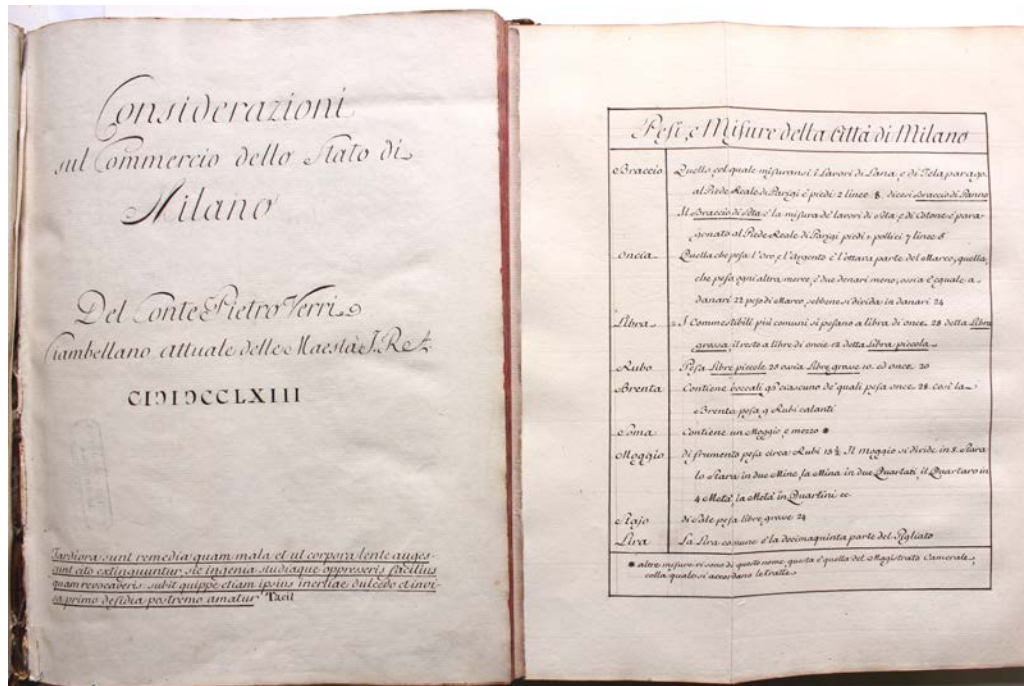 Considerazioni
sul Commercio dello Stato di
Milano
Del Conte Pietro Verri
Ciambellano attuale delle Maestà I. R. A.
CIƆIƆCCLXIII
Tardiora sunt remedia quam mala et ut corpora lente auges-
cunt cito extinguuntur, sic ingenia studiaque oppresseris facilius
quam revocaveris, subit quippe etiam ipsius inertiae dulcedo et invi-
sa primo desidia postremo amatur Tacit
Pesi, e Misure della Città di Milano
Braccio Quello, col quale misuransi i Lavori di Lana, e di Tela parago.
al Piede Reale di Parigi è piedi 2 linee 8 dicesi Braccio di Panno
Il Braccio di Seta è la misura de' lavori di Seta, e di Cotone è para-
gonato al Piede Reale di Parigi piedi 1 pollici 7 linee 8
Oncia Quella che pesa l'Oro, e l'Argento è l'ottava parte del Marco, quella,
che pesa ogni altra merce, è due denari meno, ossia è eguale a
danari 22 peso di Marco, sebbene si divida in danari 24
Libra I Commestibili più comuni si pesano a libra di once 28 detta Libra
grossa, il resto a libre di oncie 12 detta Libra piccola
Rubo Pesa Libre piccole 25 ossia Libre grave 10. ed once 20
Brenta Contiene boccali 96 ciascuno de' quali pesa once 28 così la
Brenta pesa 9 Rubi calanti
Soma Contiene un Moggio, e mezzo *
Moggio di frumento pesa circa Rubi 13½ Il moggio si divide in 8 Stara
lo Stara in due Mine, la Mina in due Quartari, il Quartaro in
4 Metà, la Metà in Quartini ec
Stajo di Sale pesa libre grave 24
Lira La Lira comune è la decimaquinta parte del Figliato
* altre misure vi sono di questo nome, questa è quella del Magistrato Camerale,
colla quale si accordano le tratte